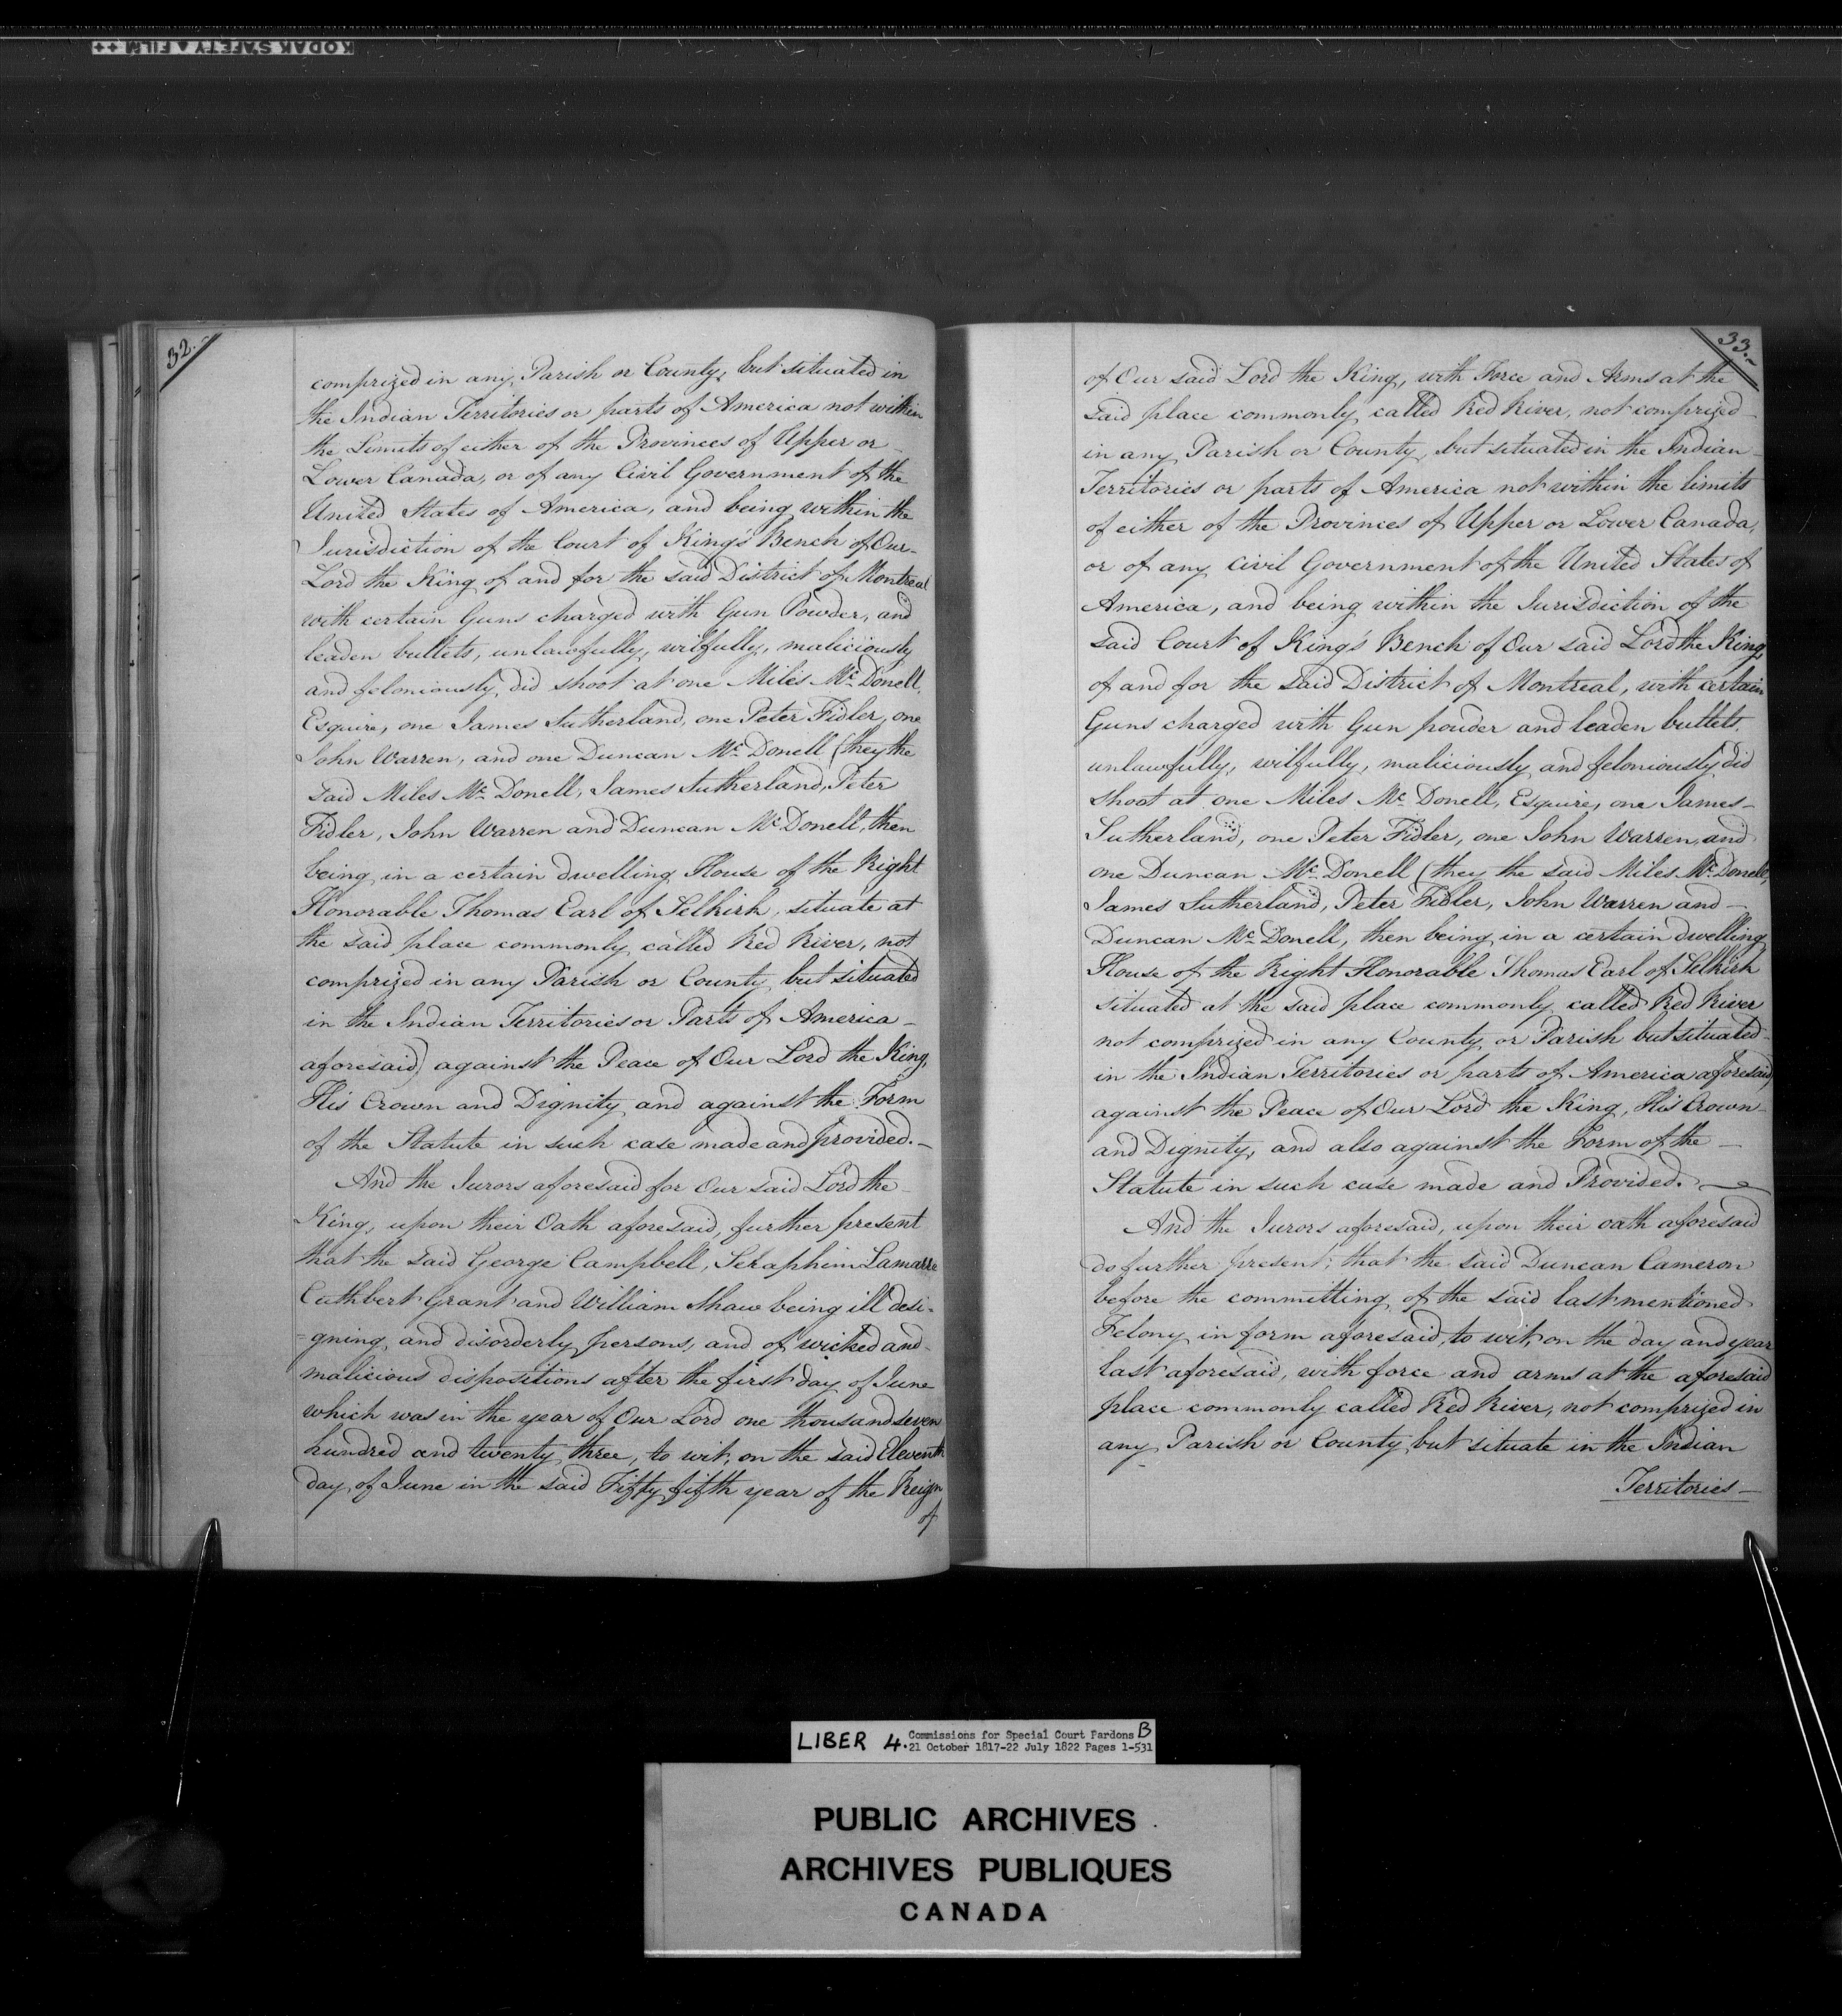 KODAK SAFETY FILM ++
32.
comprized in any Parish or County, but situated in
the Indian Territories or parts of America not within
the Limits of either of the Provinces of Upper or
Lower Canada, or of any Civil Government of the
United States of America, and being within the
Jurisdiction of the Court of King's Bench of Our-
Lord the King of and for the said District of Montreal
with certain Guns charged with Gun Powder, and
leaden bullets, unlawfully, wilfully, maliciously
and feloniously, did shoot at one Miles Mc Donell,
Esquire, one James Sutherland, one Peter Fidler, one
John Warren, and one Duncan Mc Donell (they the
said Miles Mc Donell, James Sutherland, Peter
Fidler, John Warren and Duncan Mc Donell, then
being in a certain dwelling House of the Right
Honorable Thomas Earl of Selkirk, situate at
the said place commonly called Red River, not
comprized in any Parish or County, but situated
in the Indian Territories or Parts of America-
aforesaid) against the Peace of Our Lord the King,
His Crown and Dignity and against the Form
of the Statute in such case made and provided.-
And the Jurors aforesaid for Our said Lord the
King, upon their Oath aforesaid, further present
that the said George Campbell, Seraphim Lamarre
Cuthbert Grant and William Shaw being ill desi-
=gning and disorderly persons, and of wicked and
malicious dispositions after the first day of June
which was in the year of Our Lord one thousand seven
hundred and twenty three, to wit, on the said Eleventh
day of June in the said Fifty fifth year of the Reign
of
33.
of Our said Lord the King, with Force and Arms at the
said place commonly called Red River, not comprized-
in any Parish or County, but situated in the Indian-
Territories or parts of America not within the limits
of either of the Provinces of Upper or Lower Canada,
or of any Civil Government of the United States of
America, and being within the Jurisdiction of the
said Court of King's Bench of Our said Lord the King,
of and for the said District of Montreal, with certain
Guns charged with Gun powder and leaden bullets,
unlawfully, wilfully, maliciously and feloniously did
shoot at one Miles Mc Donell, Esquire, one James-
Sutherland, one Peter Fidler, one John Warren, and
one Duncan Mc Donell (they the said Miles Mc Donell,
James Sutherland, Peter Fidler, John Warren and-
Duncan Mc Donell, then being in a certain dwelling
House of the Right Honorable Thomas Earl of Selkirk
situated at the said place commonly called Red River
not comprized in any County, or Parish but situated-
in the Indian Territories or parts of America aforesaid)
against the Peace of Our Lord the King, His Crown-
and Dignity, and also against the Form of the-
Statute in such case made and Provided.-
And the Jurors aforesaid, upon their oath aforesaid
do further present, that the said Duncan Cameron
before the committing of the said last mentioned
Felony in form aforesaid, to wit, on the day and year
last aforesaid, with force and arms at the aforesaid
place commonly called Red River, not comprized in
any Parish or County, but situate in the Indian
Territories-
LIBER 4. Commissions for Special Court Pardons B
21 October 1817-22 July 1822 Pages 1-531
PUBLIC ARCHIVES
ARCHIVES PUBLIQUES
CANADA